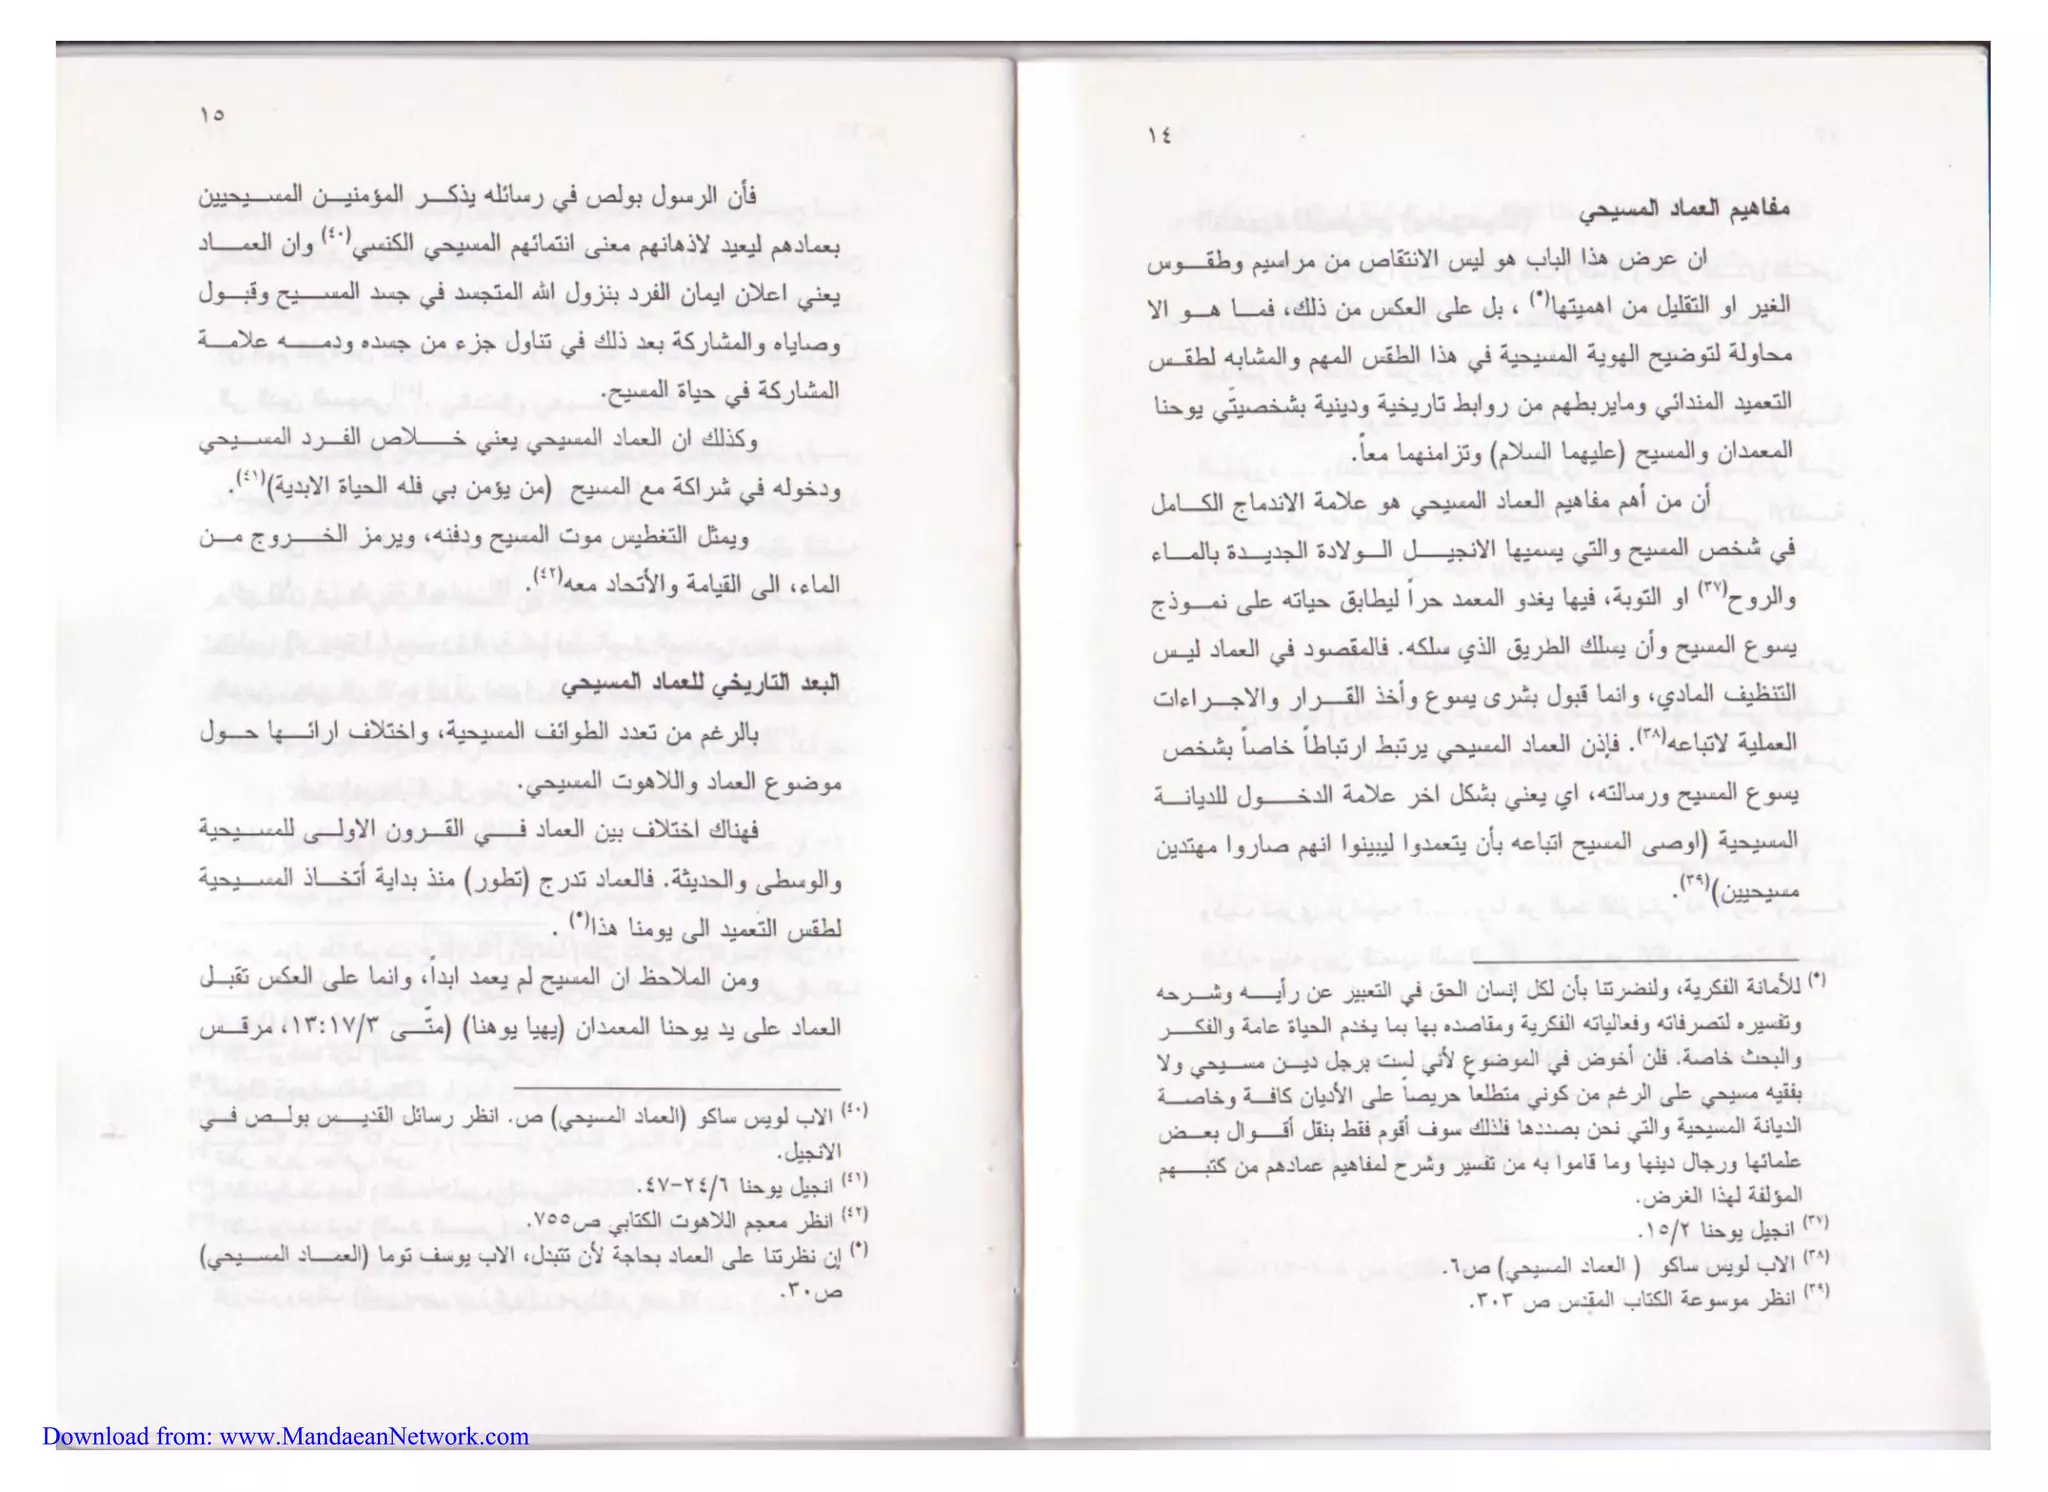 ١٤
مفاهيم العماد المسيحي
ان عرض هذا الباب هو ليس الانتقاص من مراسيم وطقـــوس
الغير او التقليل من اهميتها(*) ، بل على العكس من ذلك، فمـــا هـــو الا
محاولة لتوضيح الهوية المسيحية في هذا الطقس المهم والمشابه لطقــس
التعميد المندائي ومايربطهم من روابط تاريخية ودينية بشخصيتي يوحنا
المعمدان والمسيح (عليهما السلام) وتزامنهما معاً.
أن من أهم مفاهيم العماد المسيحي هو علامة الاندماج الكـــامل
في شخص المسيح والتي يسميها الانجيـــل الـــولادة الجديـــدة بالمـــاء
والروح(٣٧) او التوبة، فيها يغدو المعمد حراً ليطابق حياته على نمـــوذج
يسوع المسيح وأن يسلك الطريق الذي سلكه. فالمقصود في العماد ليـس
التنظيف المادي، وانما قبول بشرى يسوع وأخذ القـــرار والاجـــراءات
العملية لاتباعه(٣٨). فإذن العماد المسيحي يرتبط ارتباطاً خاصاً بشخص
يسوع المسيح ورسالته، اي يعني بشكل اخر علامة الدخـــول للديانـــة
المسيحية (اوصى المسيح اتباعه بأن يتعمدوا ليبينوا انهم صاروا مهتدين
مسيحيين)(٣٩).
(*) للأمانة الفكرية، ولنضرتنا بأن لكل إنسان الحق في التعبير عن رأيـــه وشـــرحه
وتفسيره لتصرفاته وفعالياته الفكرية ومقاصده بها بما يخدم الحياة عامة والفكـــر
والبحث خاصة. فلن أخوض في الموضوع لأني لست برجل ديـــن مســـيحي ولا
بفقيه مسيحي على الرغم من كوني متطلعاً حريصاً على الأديان كافـــة وخاصـــة
الديانة المسيحية والتي نحن بصددها فلذلك سوف أقوم فقط بنقل أقـــوال بعـــض
علمائها ورجال دينها وما قاموا به من تفسير وشرح لمفاهيم عمادهم من كتبـــهم
المؤلفة لهذا الغرض.
(٣٧) انجيل يوحنا ١٥/٢.
(٣٨) الاب لويس ساكو ( العماد المسيحي) ص٦.
(٣٩) انظر موسوعة الكتاب المقدس ص ٣٠٣.
١٥
فأن الرسول بولص في رسائله يذكـــر المؤمنيـــن المســـيحيين
بعمادهم ليعيد لاذهانهم معنى انتمائهم المسيحي الكنسي(٤٠) وان العمـــاد
يعني اعلان ايمان الفرد بنزول الله المتجسد في جسد المســـيح وقبـــول
وصاياه والمشاركة بعد ذلك في تناول جزء من جسده ودمـــه علامـــة
المشاركة في حياة المسيح.
وكذلك ان العماد المسيحي يعني خـــلاص الفـــرد المســـيحي
ودخوله في شراكة مع المسيح (من يؤمن بي فله الحياة الابدية)(٤١).
ويمثل التغطيس موت المسيح ودفنه، ويرمز الخـــروج مـــن
الماء، الى القيامة والأتحاد معه(٤٢).
البعد التاريخي للعماد المسيحي
بالرغم من تعدد الطوائف المسيحية، واختلاف ارائـــها حـــول
موضوع العماد واللاهوت المسيحي.
فهناك اختلاف بين العماد فـــي القـــرون الاولـــى للمســـيحية
والوسطى والحديثة. فالعماد تدرج (تطور) منذ بداية أتخـــاذ المســـيحية
لطقس التعميد الى يومنا هذا(*) .
ومن الملاحظ ان المسيح لم يعمد ابداً، وانما على العكس تقبـــل
العماد على يد يوحنا المعمدان (يهيا يوهنا) (متّـــى ١٣:١٧/٣، مرقـــس
(٤٠) الاب لويس ساكو (العماد المسيحي) ص. انظر رسائل القديـــس بولـــص فـــي
الانجيل.
(٤١) انجيل يوحنا ٢٤/٦-٤٧.
(٤٢) انظر معجم اللاهوت الكتابي ص٧٥٥.
(*) إن نظرتنا على العماد بحاجة لأن تتبدل، الاب يوسف توما (العمـــاد المســـيحي)
ص٣٠.
Download from: www.MandaeanNetwork.com